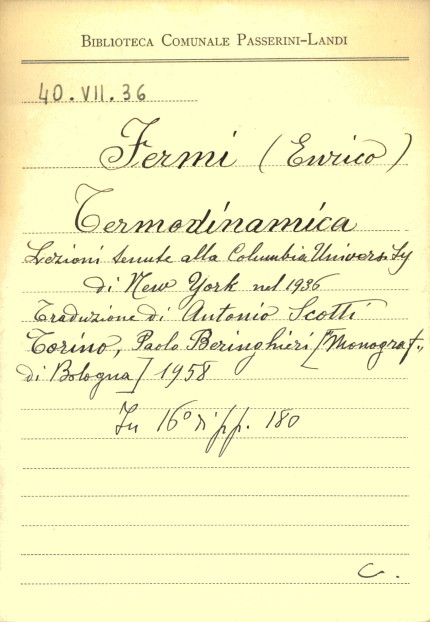 BIBLIOTECA COMUNALE PASSERINI-LANDI
40.VII.36
Fermi (Enrico)
Termodinamica
Lezioni tenute alla Columbia University
di New York nel 1936
Traduzione di Antonio Scotti
Torino, Paolo Beringhieri [Monograf.,
di Bologna] 1958
In 16° di pp. 180
C.